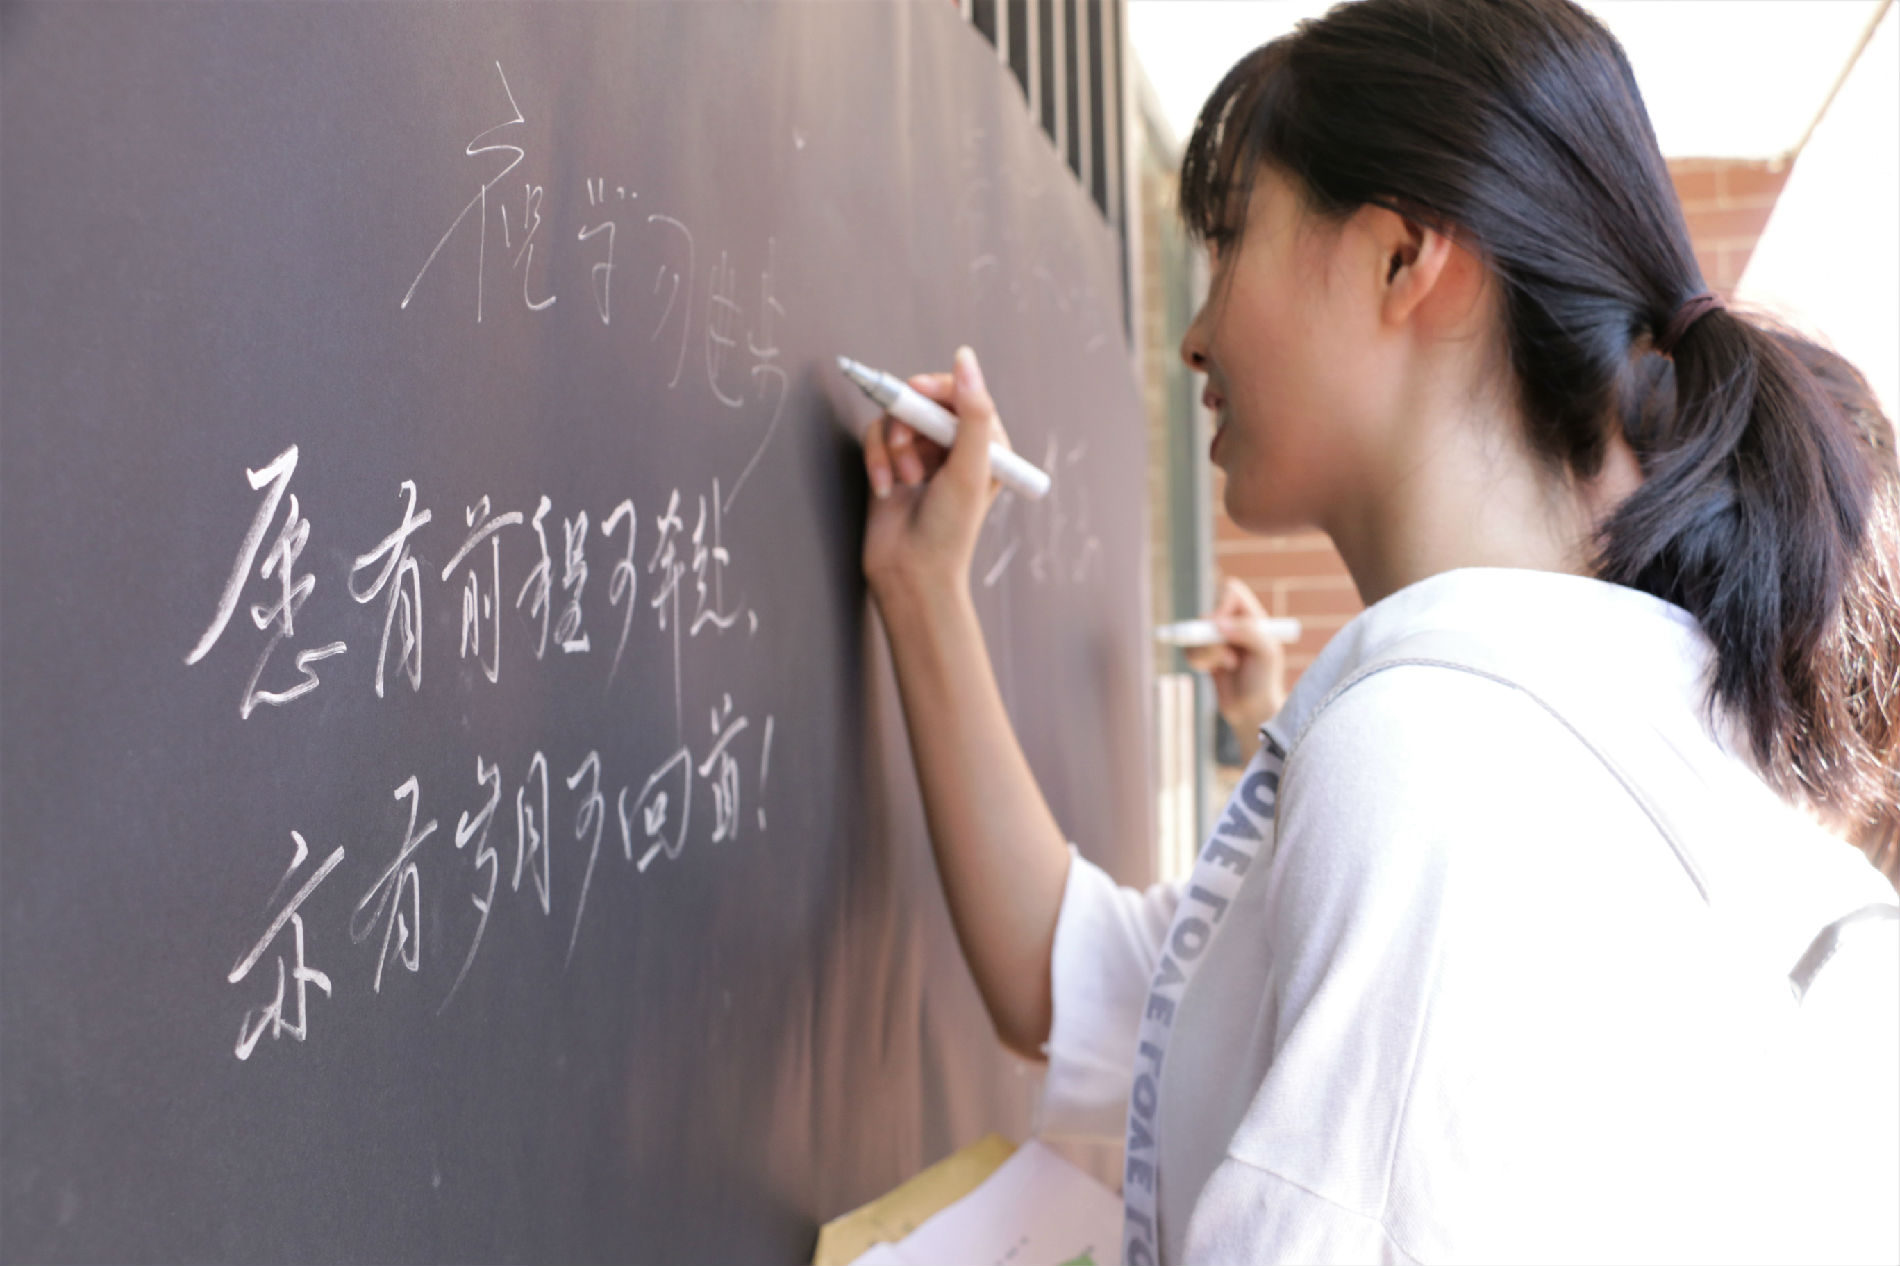 祝学习进步
愿有前程可奔赴、
亦有岁月可回首！
LOVE LOVE LOVE LOVE